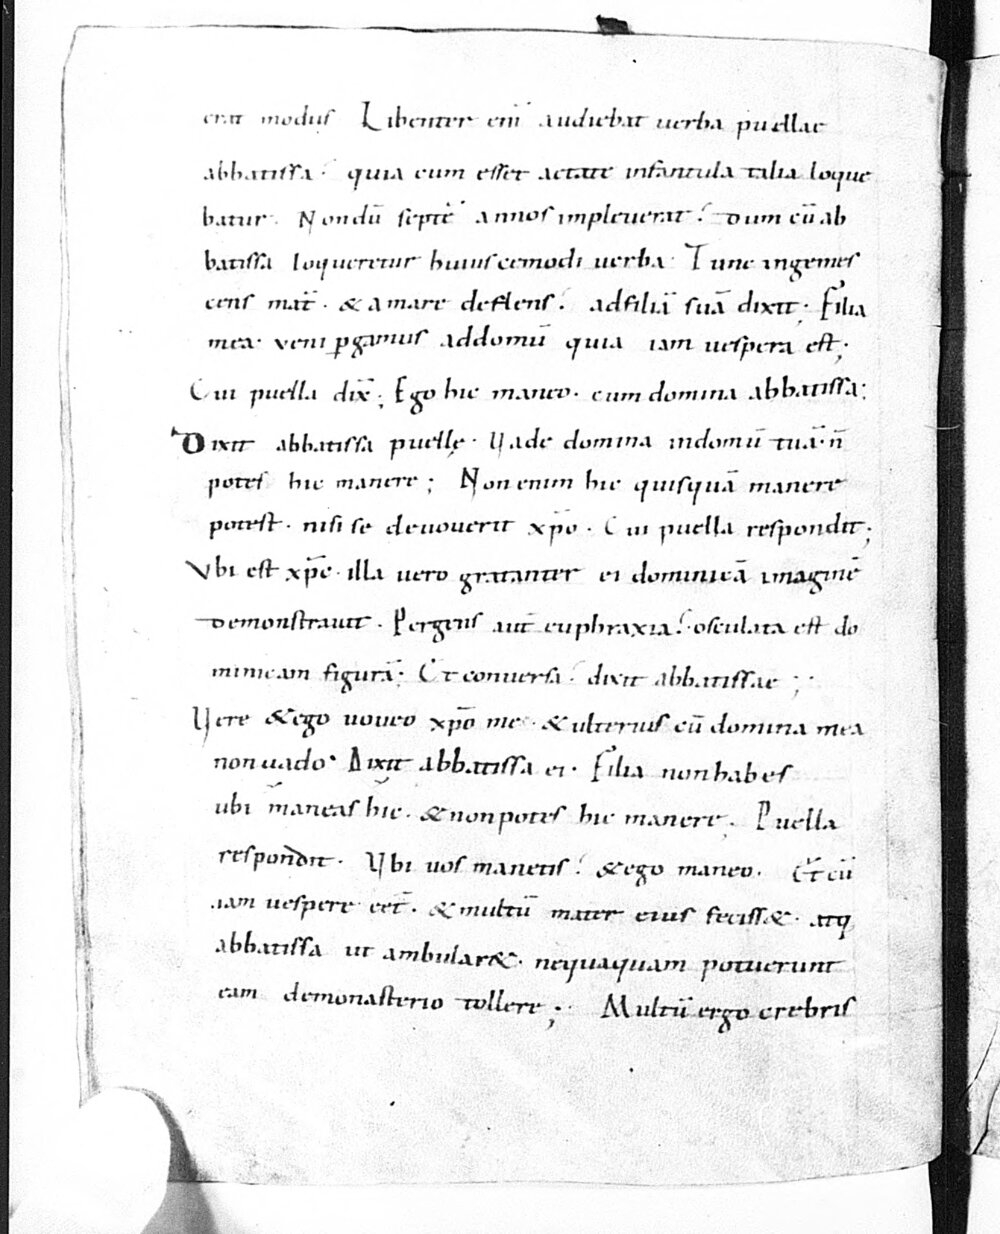 erat modus Libenter eni̅ audiebat uerba puellae
abbatissa· quia cum esset aetate infantula talia loque
batur. Nondū septē annos impleuerat· dum cū ab
batissa loqueretur huiuscemodi uerba· Tunc ingemes
cens mat̅· & amare deflens· adfiliā suā dixit; Filia
mea· veni ꝑgamus addomū quia iam uespera est;
Cui puella dix̅; Ego hic maneo· cum domina abbatissa;
Dixit abbatissa puellę· Vade domina indomū tuā· n̅
potes hic manere; Non enim hic quisquā manere
potest· nisi se deuouerit xp̅o· Cui puella respondit;
Vbi est xp̅c· illa uero gratanter ei dominicā imaginē
demonstrauit· Pergens aut̅ euphraxia· osculata est do
minicam figurā; Et conuersa· dixit abbatissae;
Vere & ego uoueo xp̅o me· & ulterius cū domina mea
non uado· Dixit abbatissa ei· Filia non habes
ubi maneas hic· & non potes hic manere; Puella
respondit· Vbi uos manetis· & ego maneo. Et cū
iam uespere eet̅· & multū mater eius feciss&· atq
abbatissa ut ambular&· nequaquam potuerunt
eam demonasterio tollere; Multū ergo crebris